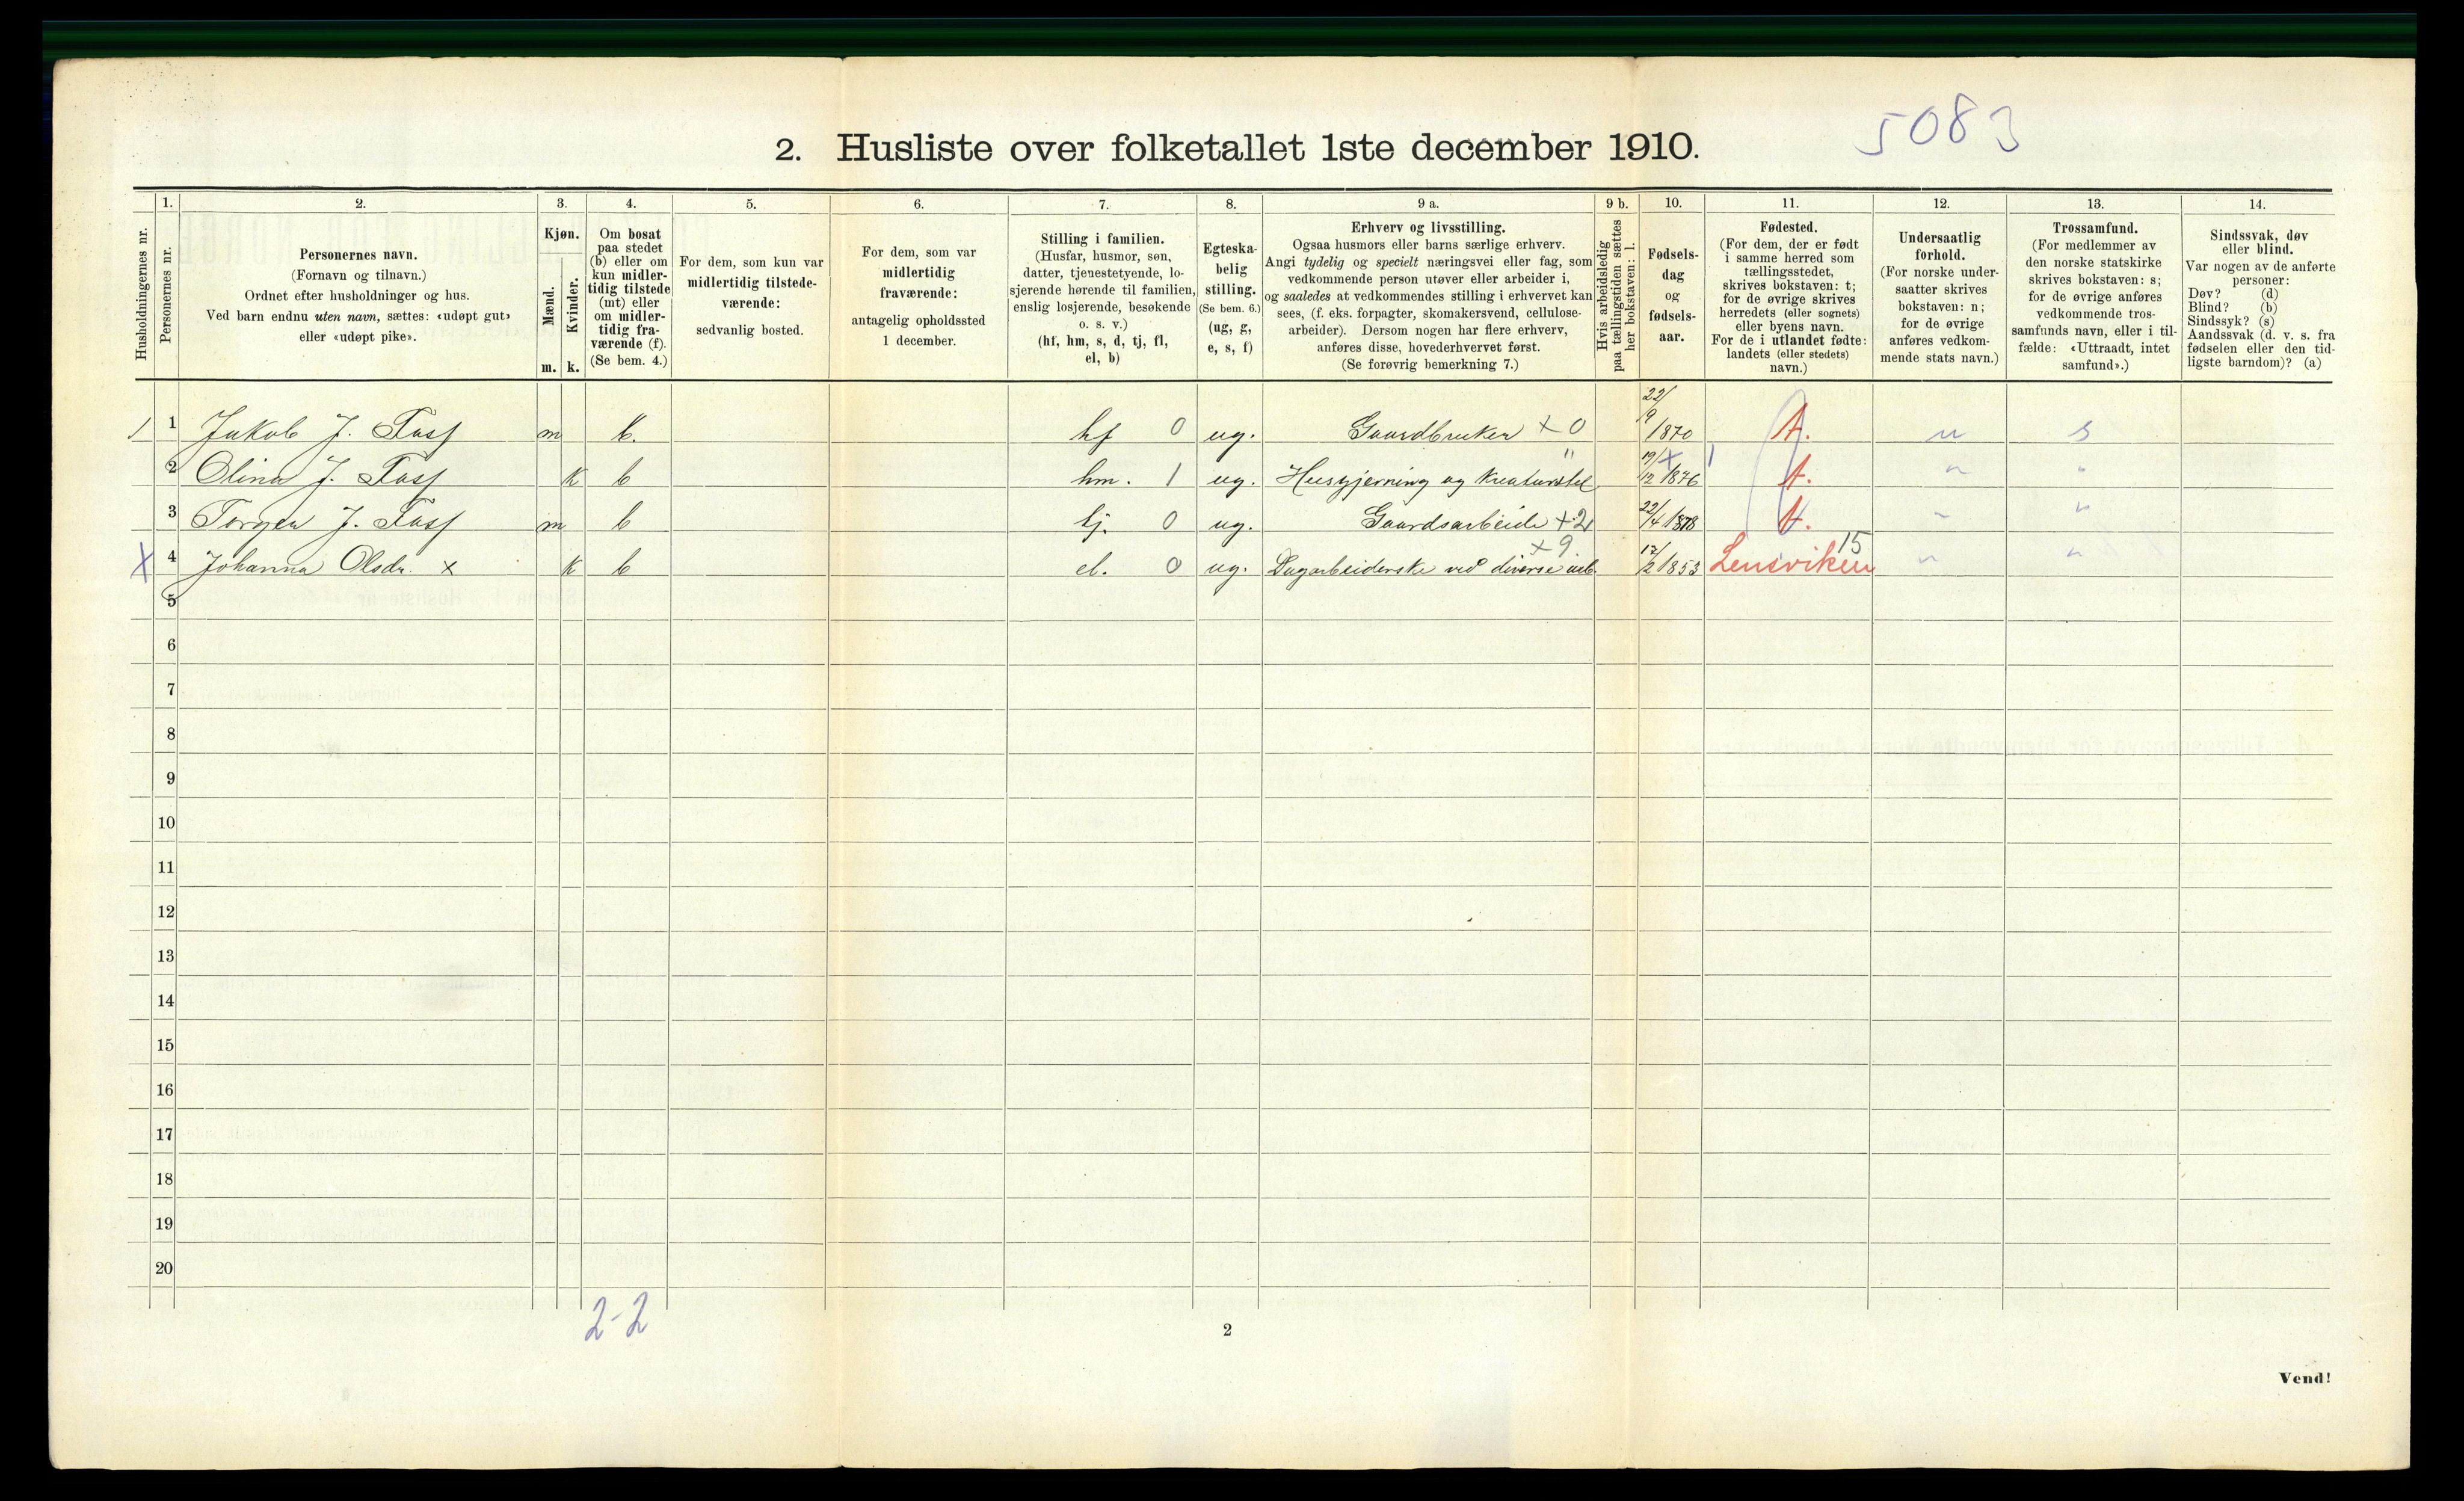 5083
2. Husliste over folketallet 1ste december 1910.
Husholdningernes nr.
1.
Personernes nr.
2.
Personernes navn.
(Fornavn og tilnavn.)
Ordnet efter husholdninger og hus.
Ved barn endnu uten navn, sættes: «udøpt gut»
eller «udøpt pike».
3.
Kjøn.
Mænd.
Kvinder.
m. k.
4.
Om bosat
paa stedet
(b) eller om
kun midler-
tidig tilstede
(mt) eller
om midler-
tidig fra-
værende (f).
(Se bem. 4.)
5.
For dem, som kun var
midlertidig tilstede-
værende:
sedvanlig bosted.
6.
For dem, som var
midlertidig
fraværende:
antagelig opholdssted
1 december.
7.
Stilling i familien.
(Husfar, husmor, søn,
datter, tjenestetyende, lo-
sjerende hørende til familien,
enslig losjerende, besøkende
o. s. v.)
(hf, hm, s, d, tj, fl,
el, b)
8.
Egteska-
belig
stilling.
(Se bem. 6.)
(ug, g,
e, s, f)
9 a.
Erhverv og livsstilling.
Ogsaa husmors eller barns særlige erhverv.
Angi tydelig og specielt næringsvei eller fag, som
vedkommende person utøver eller arbeider i,
og saaledes at vedkommendes stilling i erhvervet kan
sees, (f. eks. forpagter, skomakersvend, cellulose-
arbeider). Dersom nogen har flere erhverv,
anføres disse, hovederhvervet først.
(Se forøvrig bemerkning 7.)
9 b.
Hvis arbeidsledig
paa tællingstiden sættes
her bokstaven: l.
10.
Fødsels-
dag
og
fødsels-
aar.
11.
Fødested.
(For dem, der er født
i samme herred som
tællingsstedet,
skrives bokstaven: t;
for de øvrige skrives
herredets (eller sognets)
eller byens navn.
For de i utlandet fødte:
landets (eller stedets)
navn.)
12.
Undersaatlig
forhold.
(For norske under-
saatter skrives
bokstaven: n;
for de øvrige
anføres vedkom-
mende stats navn.)
13.
Trossamfund.
(For medlemmer av
den norske statskirke
skrives bokstaven: s;
for de øvrige anføres
vedkommende tros-
samfunds navn, eller i til-
fælde: «Uttraadt, intet
samfund».)
14.
Sindssvak, døv
eller blind.
Var nogen av de anførte
personer:
Døv? (d)
Blind? (b)
Sindssyk? (s)
Aandssvak (d. v. s. fra
fødselen eller den tid-
ligste barndom)? (a)
1 1 Jakob J. Fass m b. hf 0 ug. Gaardbruker x 0 22/9 1870 t. n s
2 Olina J. Fass k b hm. 1 ug. Husgjerning og Kreaturstel " 19/12 1876 t. " "
3 Torger J. Fass m b tj. 0 ug. Gaardsarbeide x 2 22/4 1878 t. " "
x 4 Johanna Olsdr. x k b el. 0 ug. Dagarbeiderske ved diverse arb. x 9 17/2 1853 Lensviken 15 " "
5
6
7
8
9
10
11
12
13
14
15
16
17
18
19
20
2-2
2
Vend!